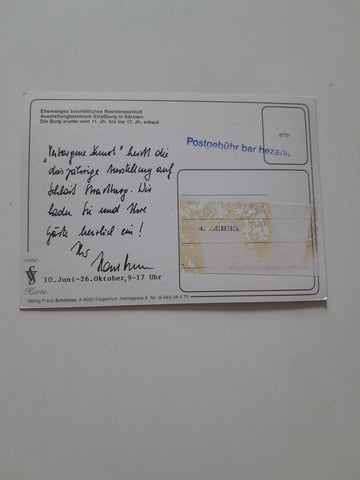 Ehemaliges bischöfliches Residenzschloß
Ausstellungszentrum Straßburg in Kärnten
Die Burg wurde vom 11. Jh. bis ins 17. Jh. erbaut
Postgebühr bar bezahlt
„Verborgene Kunst" heißt die
diesjährige Ausstellung auf
Schloß Straßburg. Wir
laden Sie und Ihre
Gäste herzlich ein!
Ihr
eine
Karte
10.Juni-26.Oktober,9-17 Uhr
Verlag Franz Schilcher, A-9020 Klagenfurt, Heinzgasse 9, Tel. (0 463)